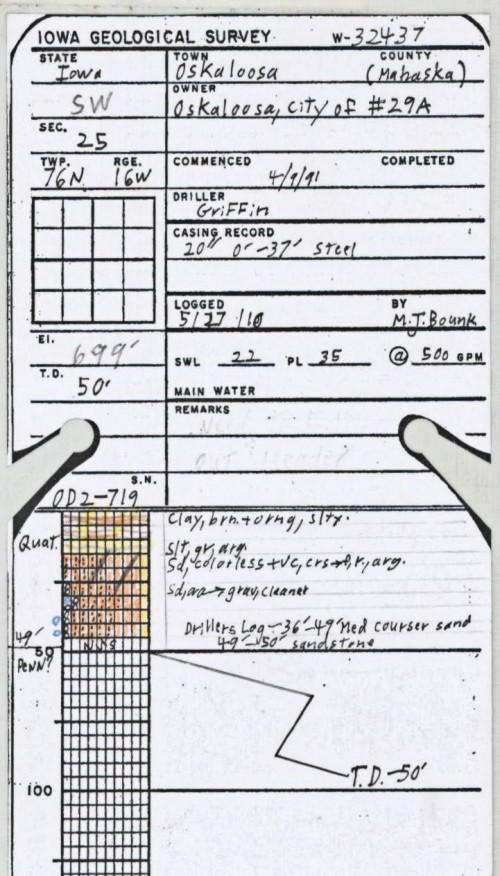 IOWA GEOLOGICAL SURVEY W-32437
STATE TOWN COUNTY
Iowa Oskaloosa (Mahaska)
OWNER
SW Oskaloosa, City of #29A
SEC.
25
TWP. RGE. COMMENCED COMPLETED
76N 16W 4/9/91
DRILLER
Griffin
CASING RECORD
20" 0'-37' Steel
LOGGED BY
5/27/10 M.J. Bounk
El.
699' SWL 22 PL 35 @ 500 GPM
T.D.
50' MAIN WATER
REMARKS
S.N.
OD2-719
Clay, brn. + orng, slty.
Quat.
Slt, gr, arg.
Sd, colorless + vc, crs→ arg.
Sd, aa→ grav, cleaner
Drillers Log - 36'-49' Med courser sand
49' 49'-50' sandstone
50 NJS
Penn?
T.D. -50'
100